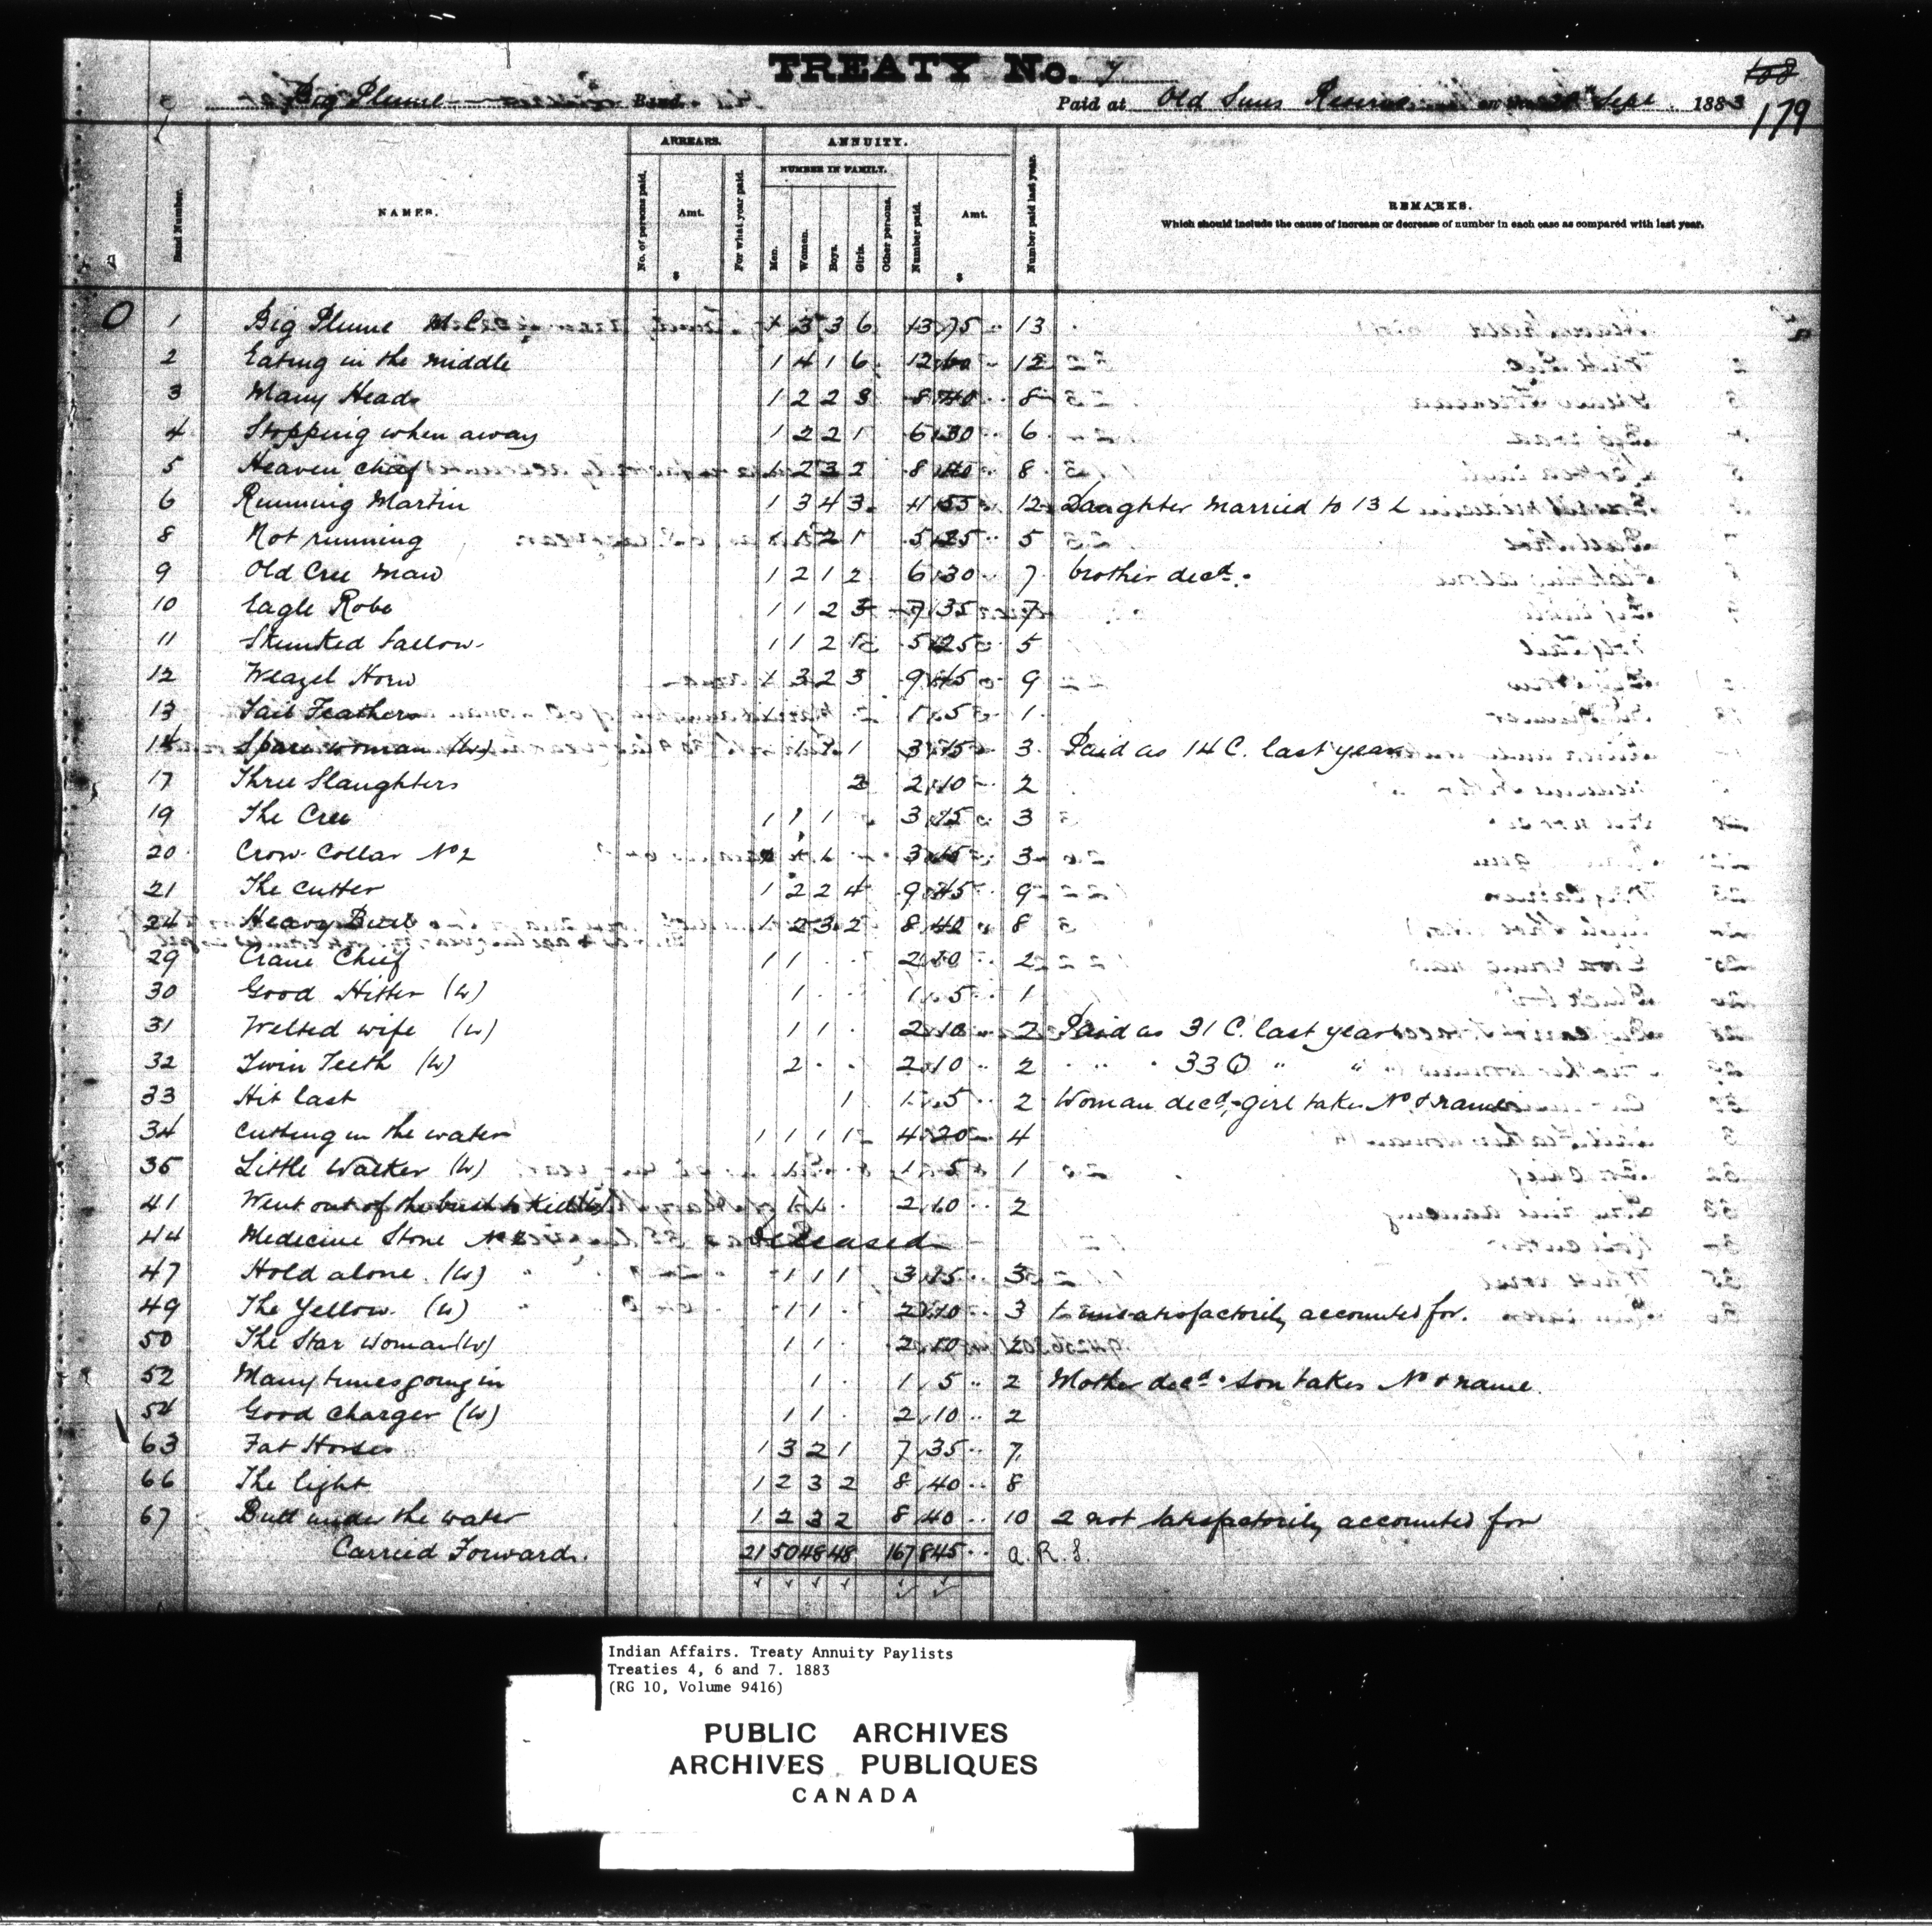 TREATY No. 7
108
179
Big Plume Band. Paid at Old Suns Reserve Sept 1883
ARREARS. ANNUITY.
NUMBER IN FAMILY.
Band Number. NAMES. No. of persons paid. Amt. $ For what year paid. Men. Women. Boys. Girls. Other persons. Number paid. Amt. $ Number paid last year. REMARKS.
Which should include the cause of increase or decrease of number in each case as compared with last year.
1 Big Plume 1 3 3 6 13 75 13
2 Eating in the middle 1 4 1 6 12 60 12
3 Many Heads 1 2 2 3 8 40 8
4 Stopping when away 1 2 2 1 6 30 6
5 Heaven chief 1 2 3 2 8 40 8
6 Running Martin 1 3 4 3 11 55 12 Daughter married to 13 L
8 Not running 1 1 2 1 5 25 5
9 Old Cree Man 1 2 1 2 6 30 7 brother decd.
10 Eagle Robe 1 1 2 3 7 35 7
11 Skunked Tallow 1 1 2 1 5 25 5
12 Weazel Horn 1 3 2 3 9 45 9
13 Tail Feathers 1 1 5 1
14 Spare woman (W) 1 1 1 3 15 3 Paid as 14 C. last year
17 Three Slaughters 2 2 10 2
19 The Cree 1 1 1 3 15 3
20 Crow Collar No 2 1 1 1 3 15 3
21 The Cutter 1 2 2 4 9 45 9
24 Heavy Bull 1 2 3 2 8 40 8
29 Crane Chief 1 1 2 10 2
30 Good Hitter (W) 1 1 5 1
31 Welted wife (W) 1 1 2 10 2 Paid as 31 C. last year
32 Twin Teeth (W) 2 2 10 2 " " 33 Q " "
33 Hit last 1 1 5 2 Woman decd, girl takes No & name
34 Cutting in the water 1 1 1 1 4 20 4
35 Little Walker (W) 1 1 5 1
41 Went out of the bush to kill (W) 1 1 2 10 2
44 Medicine Stone No 2 Deceased
47 Hold alone (W) 1 1 1 3 15 3
49 The Yellow (W) 1 1 2 10 3 1 unsatisfactorily accounted for.
50 The Star Woman (W) 1 1 2 10 2
52 Many times going in 1 1 5 2 Mother decd. son takes No & name.
54 Good Charger (W) 1 1 2 10 2
63 Fat Horses 1 3 2 1 7 35 7
66 The light 1 2 3 2 8 40 8
67 Bull under the water 1 2 3 2 8 40 10 2 not satisfactorily accounted for
Carried Forward. 21 50 48 48 167 845 a. R. S.
Indian Affairs. Treaty Annuity Paylists
Treaties 4, 6 and 7. 1883
(RG 10, Volume 9416)
PUBLIC ARCHIVES
ARCHIVES PUBLIQUES
CANADA